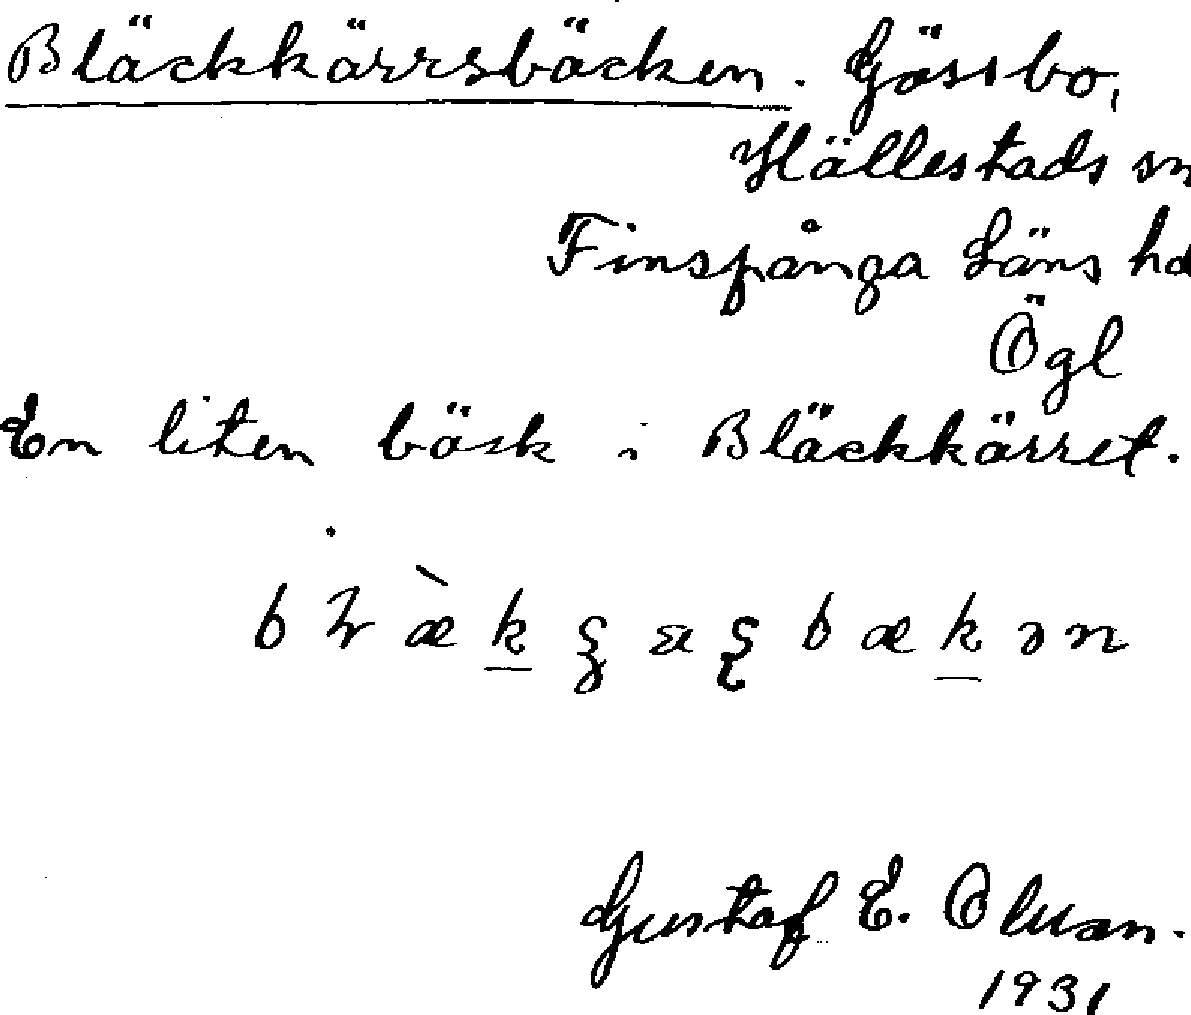 Bläckkärrsbäcken. Gässbo,
Hällestads sn
Finspånga Läns hd
Ögl
En liten bäck i Bläckkärret.
Gustaf E. Olsson.
1931